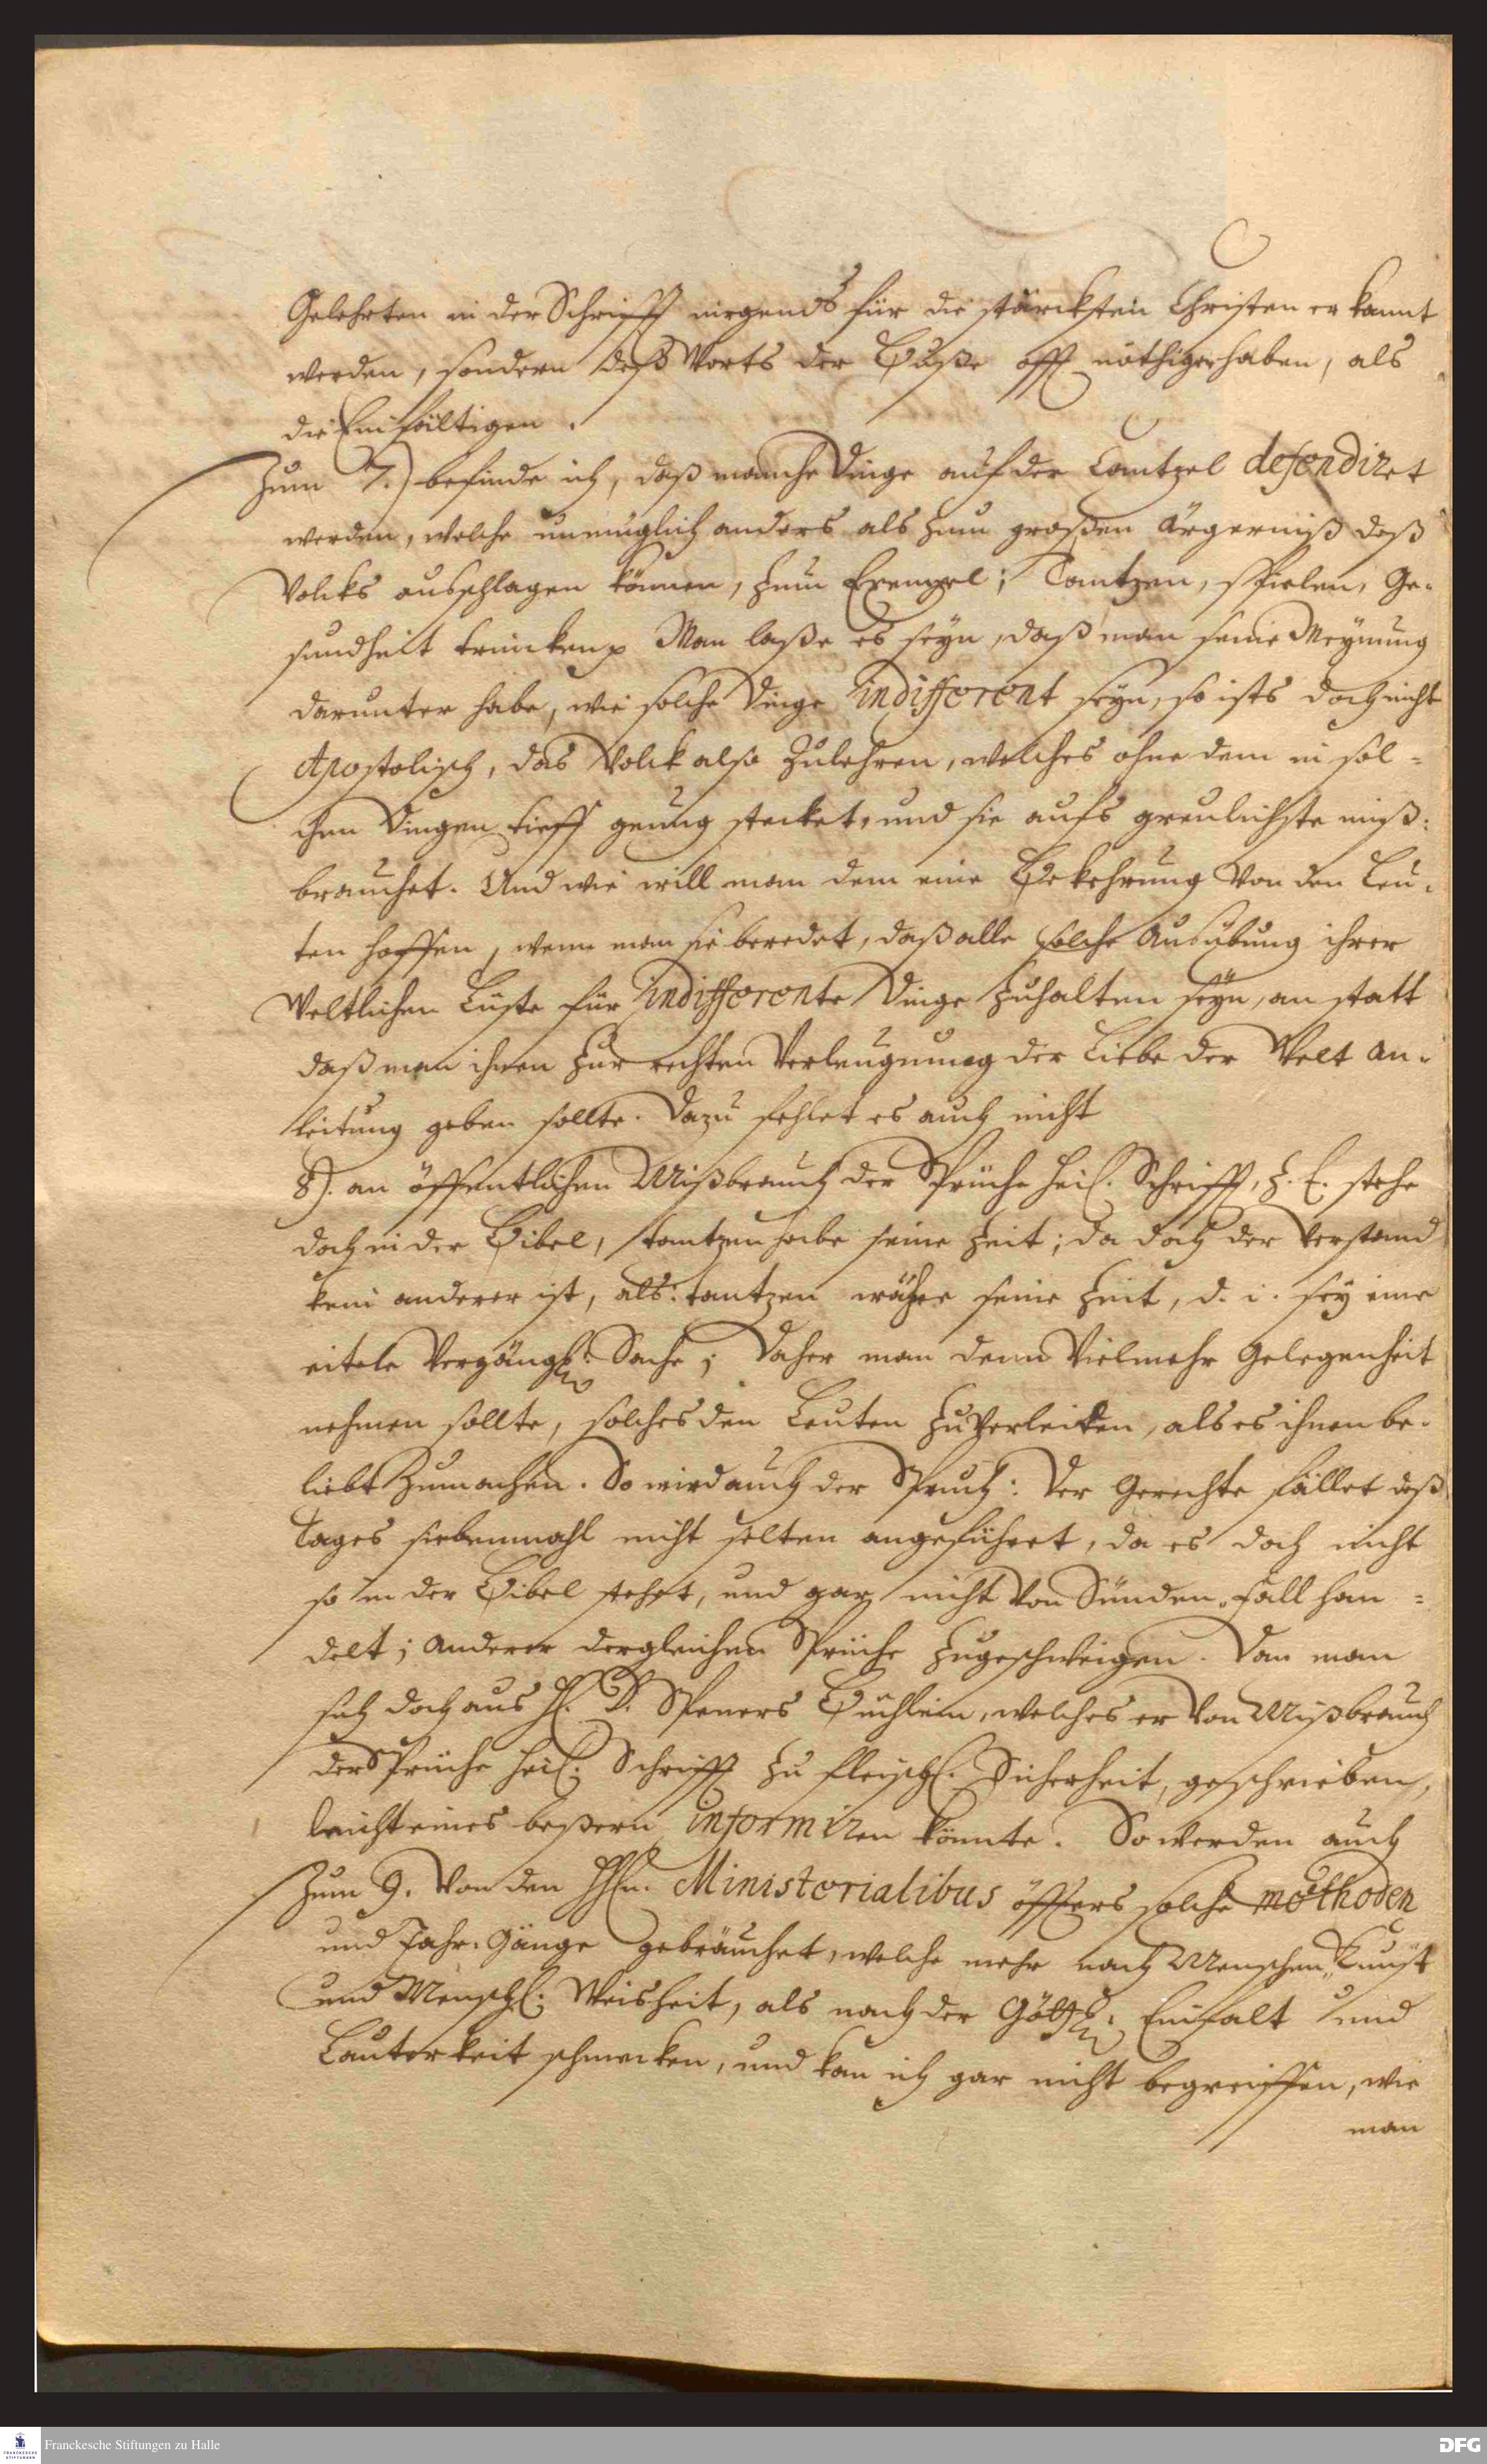 Gelehrten in der Schrifft nirgends für die stärcksten Christen erkannt
werden, sondern deß Worts der Buße offt nöthiger haben, als
die Einfältigen.
Zum 7.) befinde ich, daß manche Dinge auf der Cantzel defendiret
werden, welche unmüglich anders als zum großen Ärgerniß deß
Volcks ausschlagen können, zum Exempel; Tantzen, spielen, Ge-
sundheit trincken p Man laße es seyn, daß man seine Meynung
darunter habe, wie solche Dinge indifferent seyn, so ists doch nicht
Apostolisch, das Volck also zulehren, welches ohne dem in sol-
chen Dingen tieff genug stecket, und sie aufs greulichste miß-
brauchet. Und wie will man denn eine Bekehrung von den Leu-
ten hoffen, wenn man sie beredet, daß alle solche Ausübung ihrer
Weltlichen Lüste für indifferente Dinge zuhalten seyn, an statt
daß man ihnen zur rechten Verleugnung der Liebe der Welt An-
leitung geben sollte. Dazu fehlet es auch nicht
8). an öffentlichen Mißbrauch der Sprüche Heil. Schrifft, z. E. stehe
doch in der Bibel, tantzen habe seine Zeit; da doch der Verstand
kein anderer ist, als: tantzen währe seine Zeit, d. i. sey eine
eitele vergängl: Sache; Daher man denn vielmehr Gelegenheit
nehmen sollte, solches den Leuten zuverleiten, als es ihnen be-
liebt zumachen. So wird auch der Spruch: Der Gerechte fället deß
Tages siebenmahl nicht selten angeführet, da es doch nicht
so in der Bibel stehet, und gar nicht von Sünden-Fall han-
delt; anderer dergleichen Sprüche zugeschweigen. Dan man
sich doch aus H. D. Speners Büchlein, welches er von Mißbrauch
der Sprüche Heil. Schrifft zu fleischl. Sicherheit, geschrieben,
leicht eines beßern informiren könnte. So werden auch
Zum 9. von den HHn. Ministerialibus öffters solche methoden
und Jahr-Gänge gebräuchet, welche mehr nach Menschen-Kunst
und Menschl. Weisheit, als nach der Göttl: Einfalt und
Lauterkeit schmecken, und kan ich gar nicht begreiffen, wie
man
Franckesche Stiftungen zu Halle
DFG